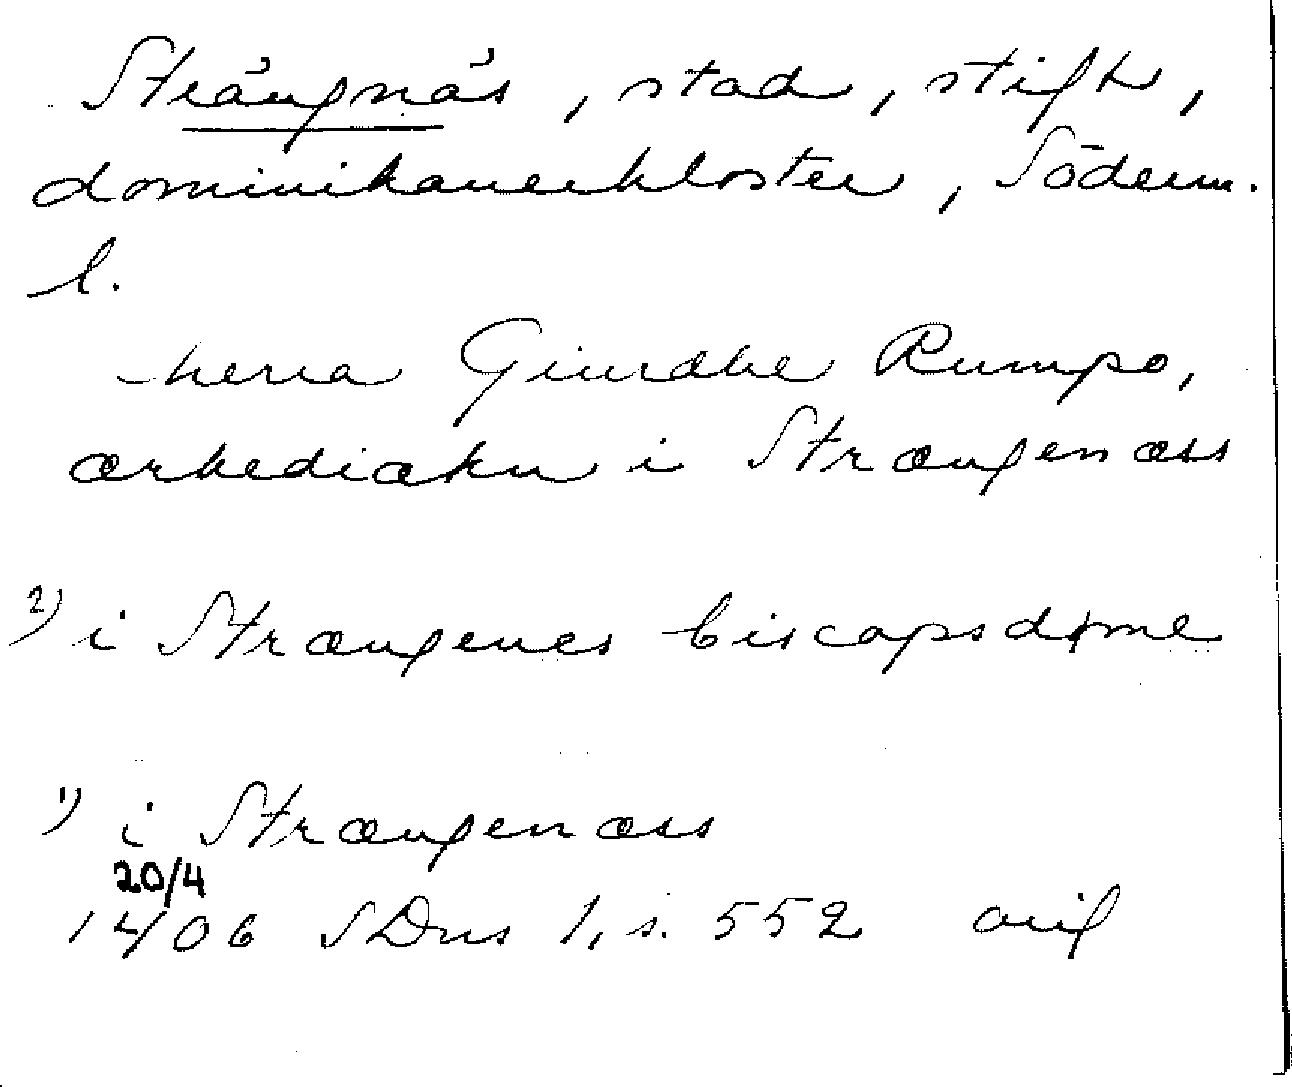 Strängnäs, stad, stift,
dominikanerkloster, Söderm.
l.
herra Giurdhe Rumpo,
ærkediækn i Strængenæss
2) i Strængenes biscopsdøme
1) i Strængenæss
20/4
1406 SDns 1, s. 552 orig